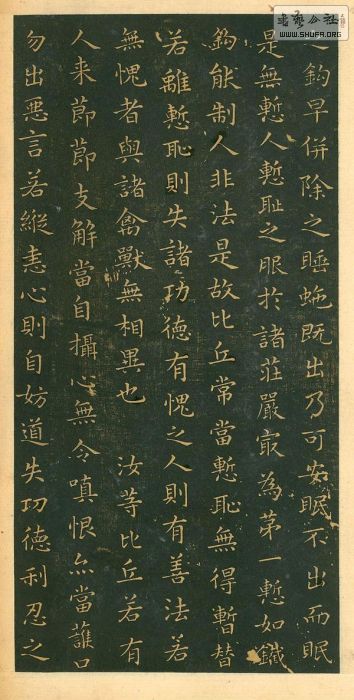 書藝公社
WWW.SHUFA.ORG
鈎早併除之睡虵既出乃可安眠不出而眠
是無慙人慙耻之服於諸莊嚴最為第一慙如鐵
鈎能制人非法是故比丘常當慙恥無得暫替
若離慙恥則失諸功德有愧之人則有善法若
無愧者與諸禽獸無相異也 汝等比丘若有
人来節節支解當自攝心無令嗔恨亦當護口
勿出惡言若縱恚心則自妨道失功德利忍之